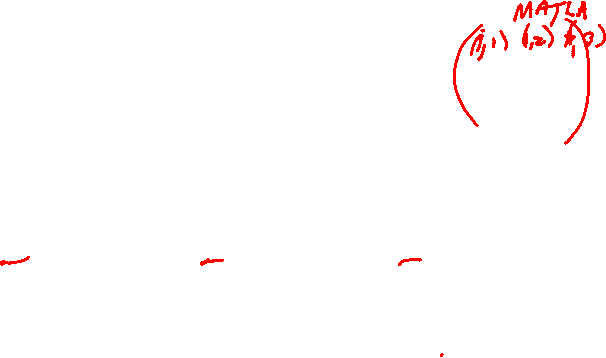 MATLA
(1,1) (1,2) (1,3)